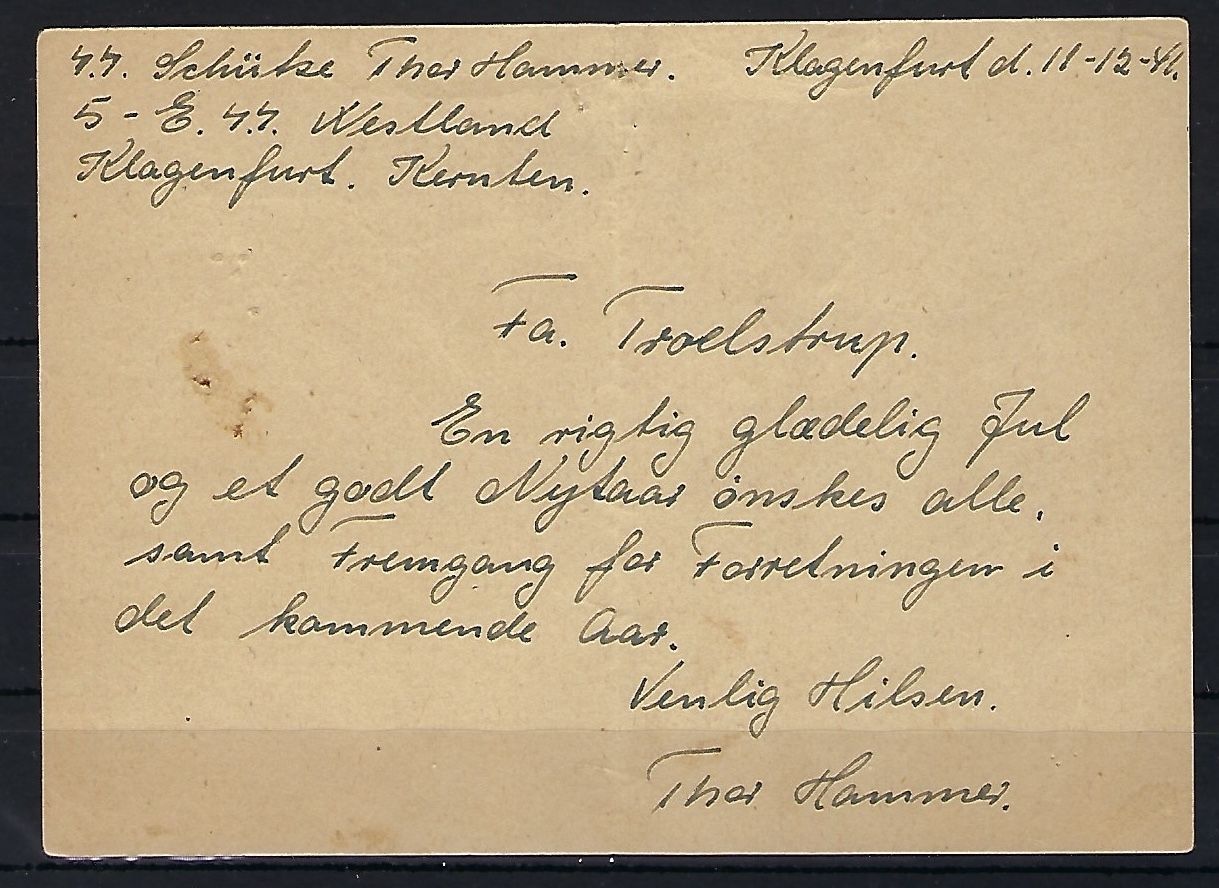 ᛋᛋ. Schütze Thor Hammer. Klagenfurt d. 11-12-41.
5 - E. ᛋᛋ. Westland
Klagenfurt. Kernten.
Fa. Troelstrup.
En rigtig glædelig Jul
og et godt Nytaar ønskes alle.
samt Fremgang for Forretningen i
det kommende Aar.
Venlig Hilsen.
Thor Hammer.